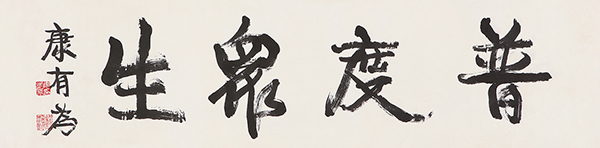 普度眾生
康有為